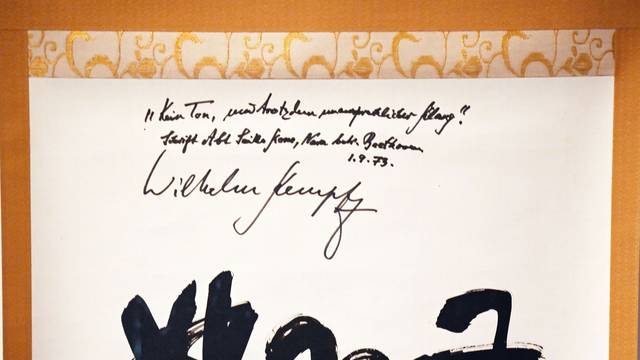 „Kein Ton, und trotzdem unaussprechlicher Klang“
schrift Abt Seiko Kono, Nara betr. Beethoven
1.9.73.
Wilhelm Kempff